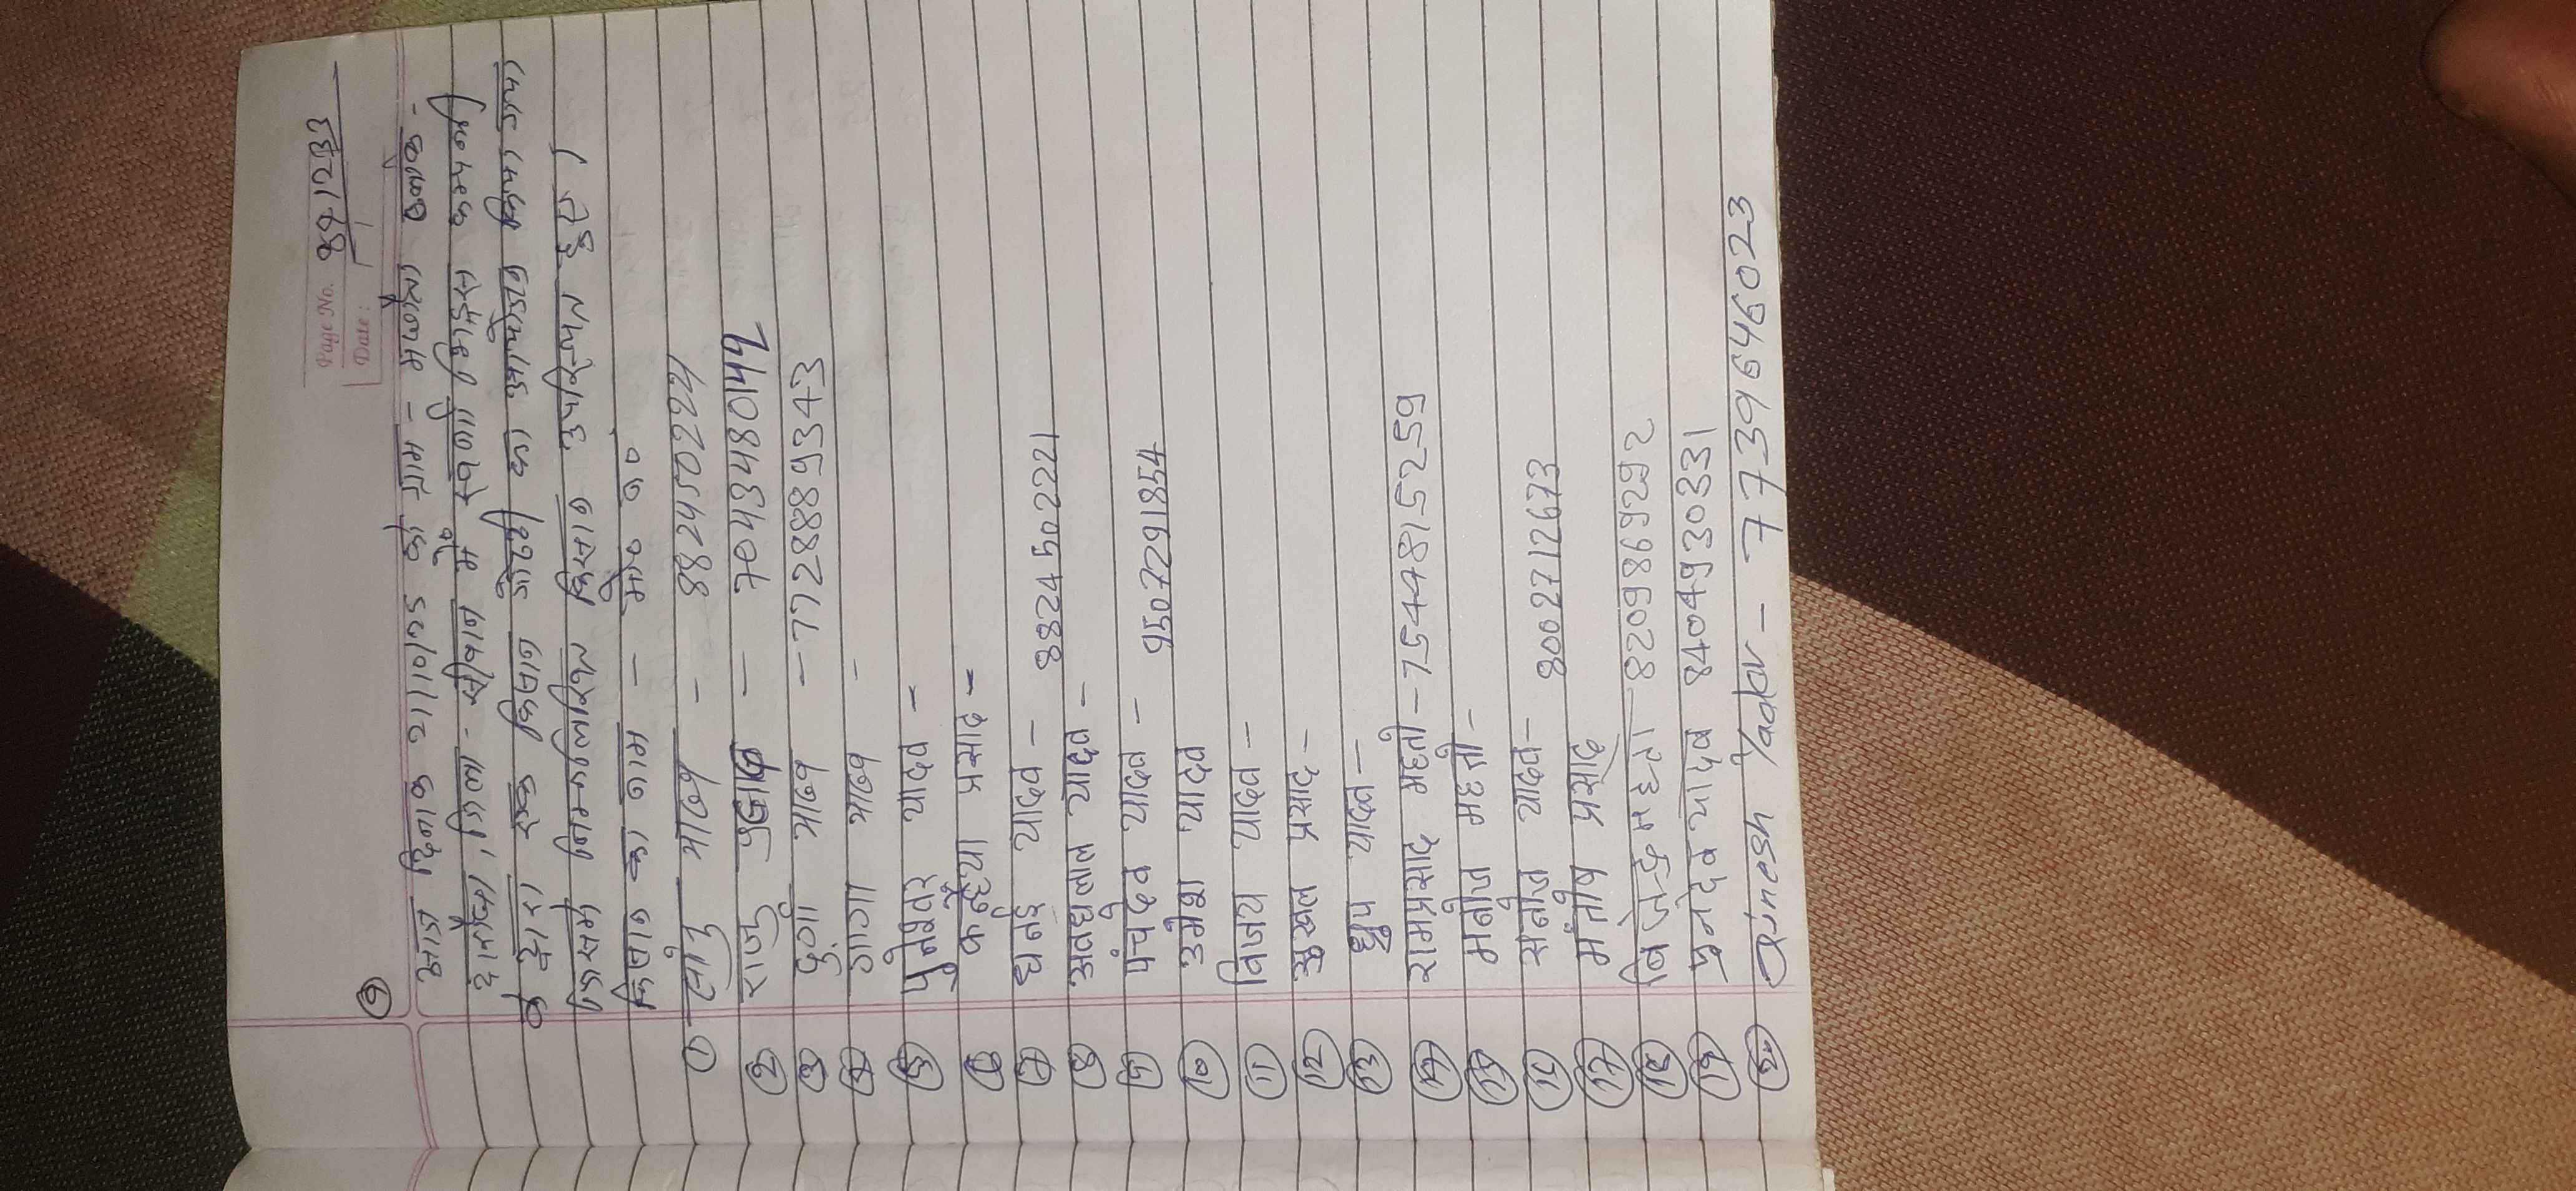 Page No. 89.1233
Date:
①
आज दिनांक को ग्राम -
जिला - सीवान में स्वर्णा कम्पनी
के द्वारा एक किसान गोष्ठी का आयोजन किया गया
जिसमें निम्नलिखित किसान उपस्थित हुए।
किसान का नाम - मो० न०
① यादव - 8824502221
② राजु प्रसाद - 7043480142
③ दुर्गा यादव - 7728889343
④ गागा यादव -
⑤ पुनेश्वर यादव -
⑥ कन्हैया प्रसाद -
⑦ धनई यादव - 8824502221
⑧ अवधलाल यादव -
⑨ पंचदेव यादव - 9507291854
⑩ उमेश यादव
⑪ विजय यादव -
⑫ सुखल प्रसाद -
⑬ ध्रुप यादव -
⑭ रामप्रसाद महतो - 7544815259
⑮ मनोज महतो -
⑯ सनोज यादव - 8002712673
⑰ मंतोष प्रसाद
⑱ महतो 8209869292
⑲ यादव 8404930331
⑳ Dinesh Yadav - 7739646023